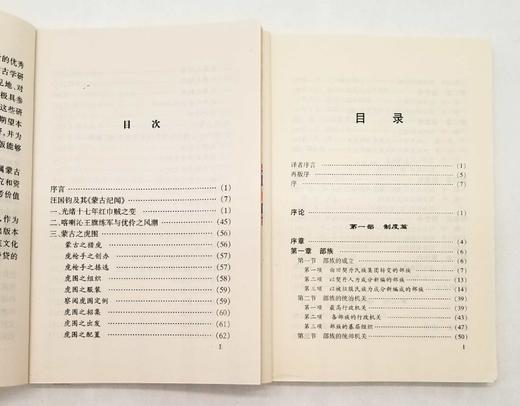 的优秀
古学研
见地、对
极具参
这些研
期望本
，并为
版能够
属蒙古
究和资
考价值
作为
出版本
主文化
学贷的
目 次
序言 (1)
汪国钧及其《蒙古纪闻》 (7)
一、光绪十七年红巾贼之变 (1)
二、喀喇沁王旗练军与优伶之风潮 (45)
三、蒙古之虎围 (56)
蒙古之猎虎 (56)
虎枪手之创办 (57)
虎枪手之拣选 (57)
虎围之组织 (58)
虎围之服装 (58)
察阅虎围定例 (59)
虎围之招集 (60)
虎围之出发 (61)
虎围之配置 (62)
1
目 录
译者序言 (1)
再版序 (5)
序 (7)
序论 (1)
第一部 制度篇
序章 (4)
第一章 部族 (6)
第一节 部族的成立 (6)
第一项 由旧契丹民族集团转变的部族 (7)
第二项 以契丹人为成分新编的部族 (24)
第三项 以被征服民族为成分新编成的部族 (28)
第二节 部族的统治机关 (39)
第一项 最高行政机关 (39)
第二项 各部族的行政机关 (43)
第三项 部族的基层组织 (47)
第三节 部族的统帅机关 (50)
1